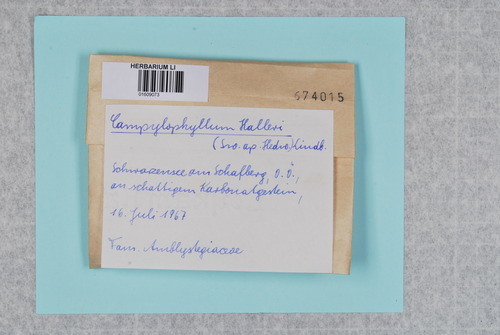 HERBARIUM LI
01609073
674015
Campylophyllum Halleri
(Sw. ap Hedw.) Kindb.
Schwarzensee am Schafberg, O.Ö.,
an schattigem Karbonatgestein,
16. Juli 1967
Fam. Amblystegiaceae